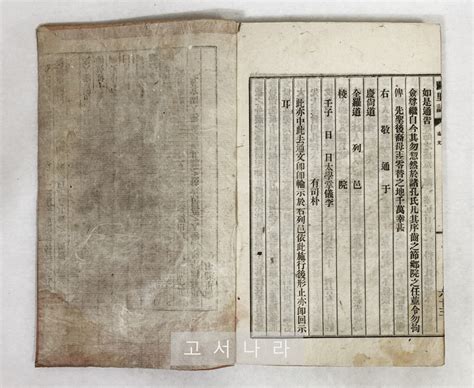 闕里誌
六十三
如是通
尊 自今其勿忽然於諸孔氏凡其序齒之節鄉院之任並令勿拘
俾 先聖後裔毋至零替之地千萬幸甚
右敬通于
慶尙道
全羅道 列邑
院
壬子 日 日太學掌儀李
有司朴
此亦中此去通文 輪示於右列邑依此施行後形止亦卽回示
耳
고서나라